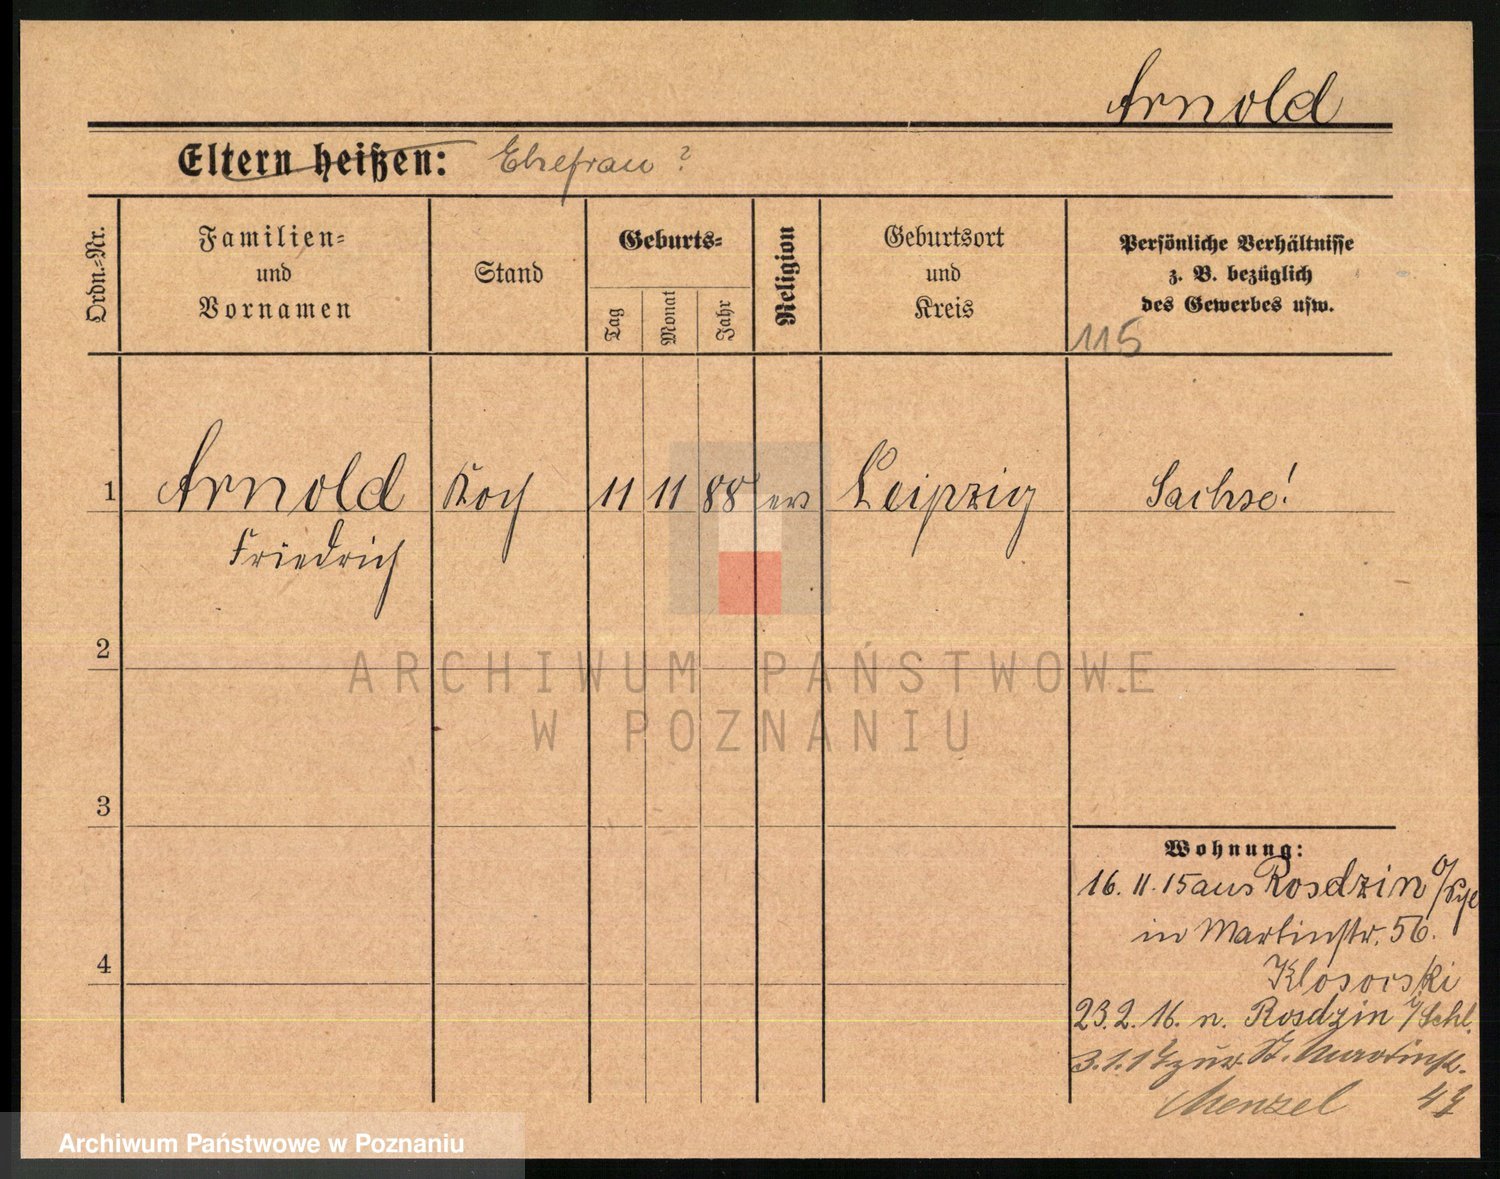 Arnold
Eltern heißen: Ehefrau?
Ordn.-Nr.
Familien-
und
Vornamen
Stand
Geburts-
Tag
Monat
Jahr
Religion
Geburtsort
und
Kreis
Persönliche Verhältnisse
z. B. bezüglich
des Gewerbes usw.
115
1 Arnold Koch 11 11 88 ev Leipzig Sachse!
Friedrich
2
3
4
Wohnung:
16. 11. 15 aus Rosdzin
in Martinstr. 56.
23.2.16. n. Rosdzin i/Schl.
3.1.17 zur. St. Martinstr.
Menzel 47
ARCHIWUM PAŃSTWOWE
W POZNANIU
Archiwum Państwowe w Poznaniu